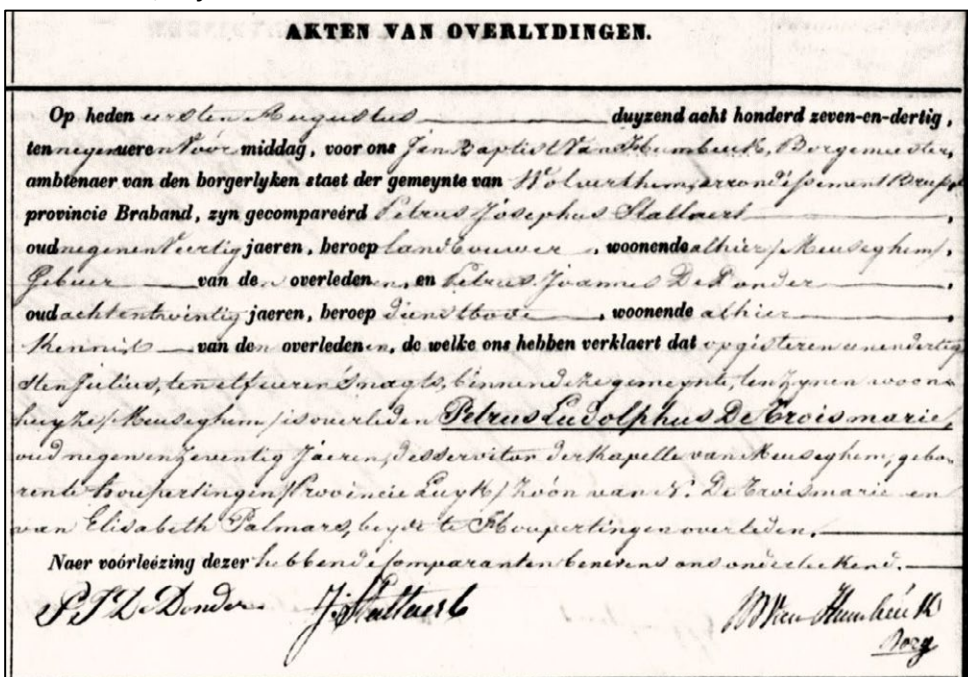 AKTEN VAN OVERLYDINGEN.
Op heden ersten Augustus duyzend acht honderd zeven-en-dertig,
ten negen ueren Vóór middag, voor ons Jan Baptist Van Humbeeck, Borgemeester,
ambtenaer van den borgerlyken staet der gemeynte van Wolverthem, arrondissement Brussel
provincie Braband, zyn gecompareérd Petrus Josephus Stallaert,
oud negen en Veertig jaeren, beroep landbouwer, woonende alhier / Meuseghem /,
Gebuer van den overleden en, en Petrus Joannes De Donder,
oud acht en twintig jaeren, beroep dienstbode, woonende alhier,
Kennis van den overleden en, de welke ons hebben verklaert dat op gisteren eenendertig
sten Julius, ten elf ueren s'nagts, binnen deze gemeynte, ten zynen woon-
huyze / Meuseghem / is overleden Petrus Ludolphus De Troismarie,
oud negen en zeventig Jaeren, desservitor der kapelle van Meuseghem, gebo-
ren te houpertingen / Provincie Luyk / Zoón van N. De Troismarie en
van Elisabeth Palmars, beyde te Houpertingen overleden.
Naer voórleézing dezer hebben de Comparanten benevens ons onderteekend.
P J De Donder J. Stallaert JB Van Humbéeck
Borg